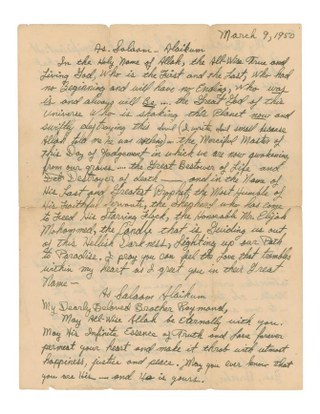 March 9, 1950
As-Salaam-Alaikum
In the Holy Name of Allah, the All-Wise, True and
Living God, Who is the First and the Last, Who had
no Beginning and will have no Ending, Who was
is and always will Be — the Great God of this
Universe Who is shaking this Planet now and
swiftly destroying this devil (I write devil small because
Allah told us he was nothing) — the Merciful Master of
this Day of Judgement in which we are now awakening
from our graves — the Great Bestower of Life and
Destroyer of death — and in the Name of
His Last and Greatest Prophet, the Most Humble of
His Faithful Servants, the Shepherd who has come
to Feed His Starving Flock, the Honorable Mr. Elijah
Mohammed, the Candle that is Guiding us out
of this Hellish Darkness, Lighting up our Path
to Paradise. I pray you can feel the Love that trembles
within my heart as I greet you in this Great
Name —
As Salaam Alaikum
My Dearly Beloved Brother Raymond,
May All-Wise Allah be eternally with you.
May His Infinite Essence of Truth and Love forever
permeat your heart and make it throb with utmost
happiness, justice and peace. May you ever know that
you are His — and is yours.